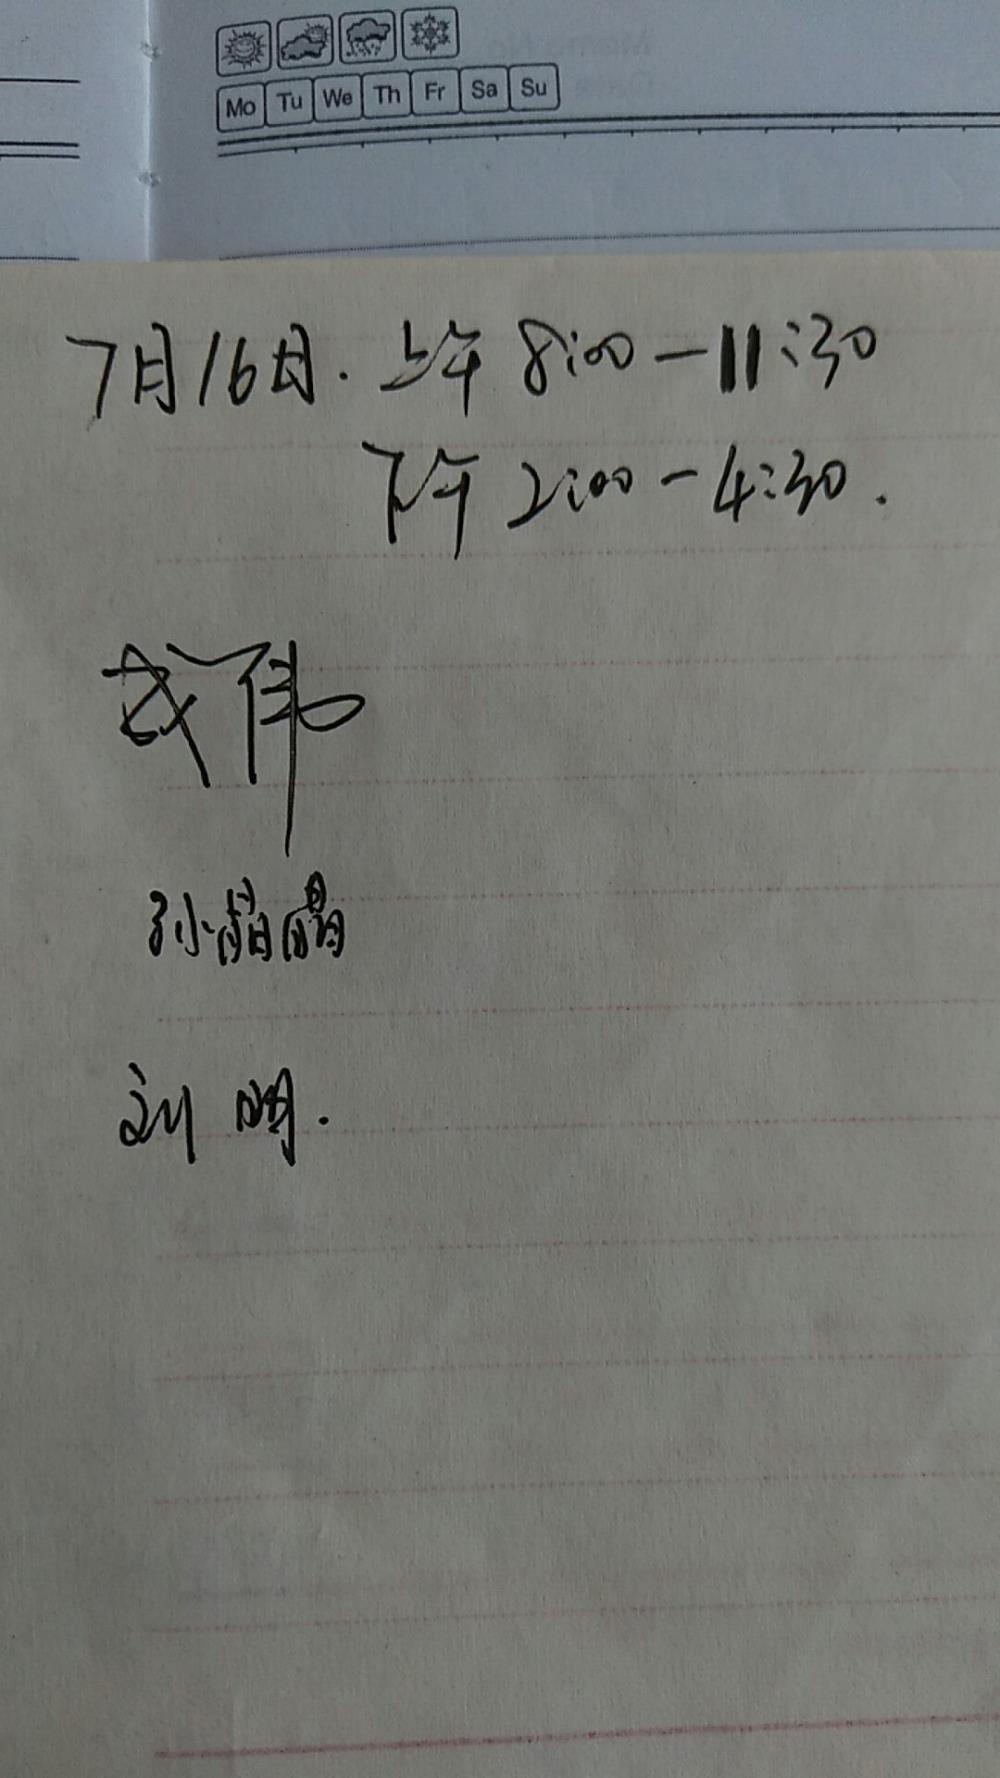 Mo Tu We Th Fr Sa Su
7月16日. 上午 8:00-11:30
下午 2:00-4:30.
孙晶晶
刘 明.